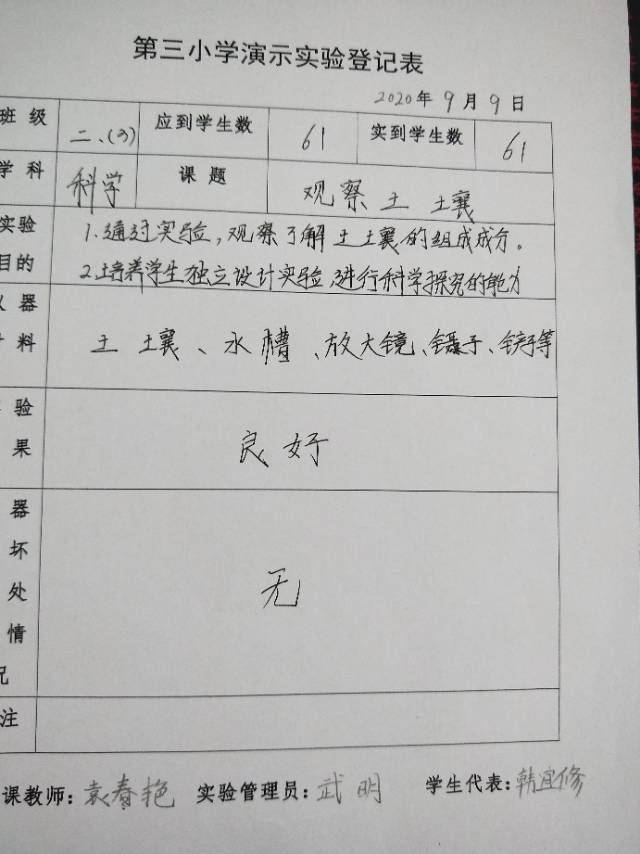 第三小学演示实验登记表
2020年9月9日
班级 二、(3) 应到学生数 61 实到学生数 61
学科 科学 课题 观察土壤
实验
目的
1.通过实验,观察了解土壤的组成成分。
2.培养学生独立设计实验,进行科学探究的能力
器
料
土壤、水槽、放大镜、镊子、铲等
验
果
良好
器
坏
处
情
况
无
注
课教师:袁春艳 实验管理员:武明 学生代表:韩宜修